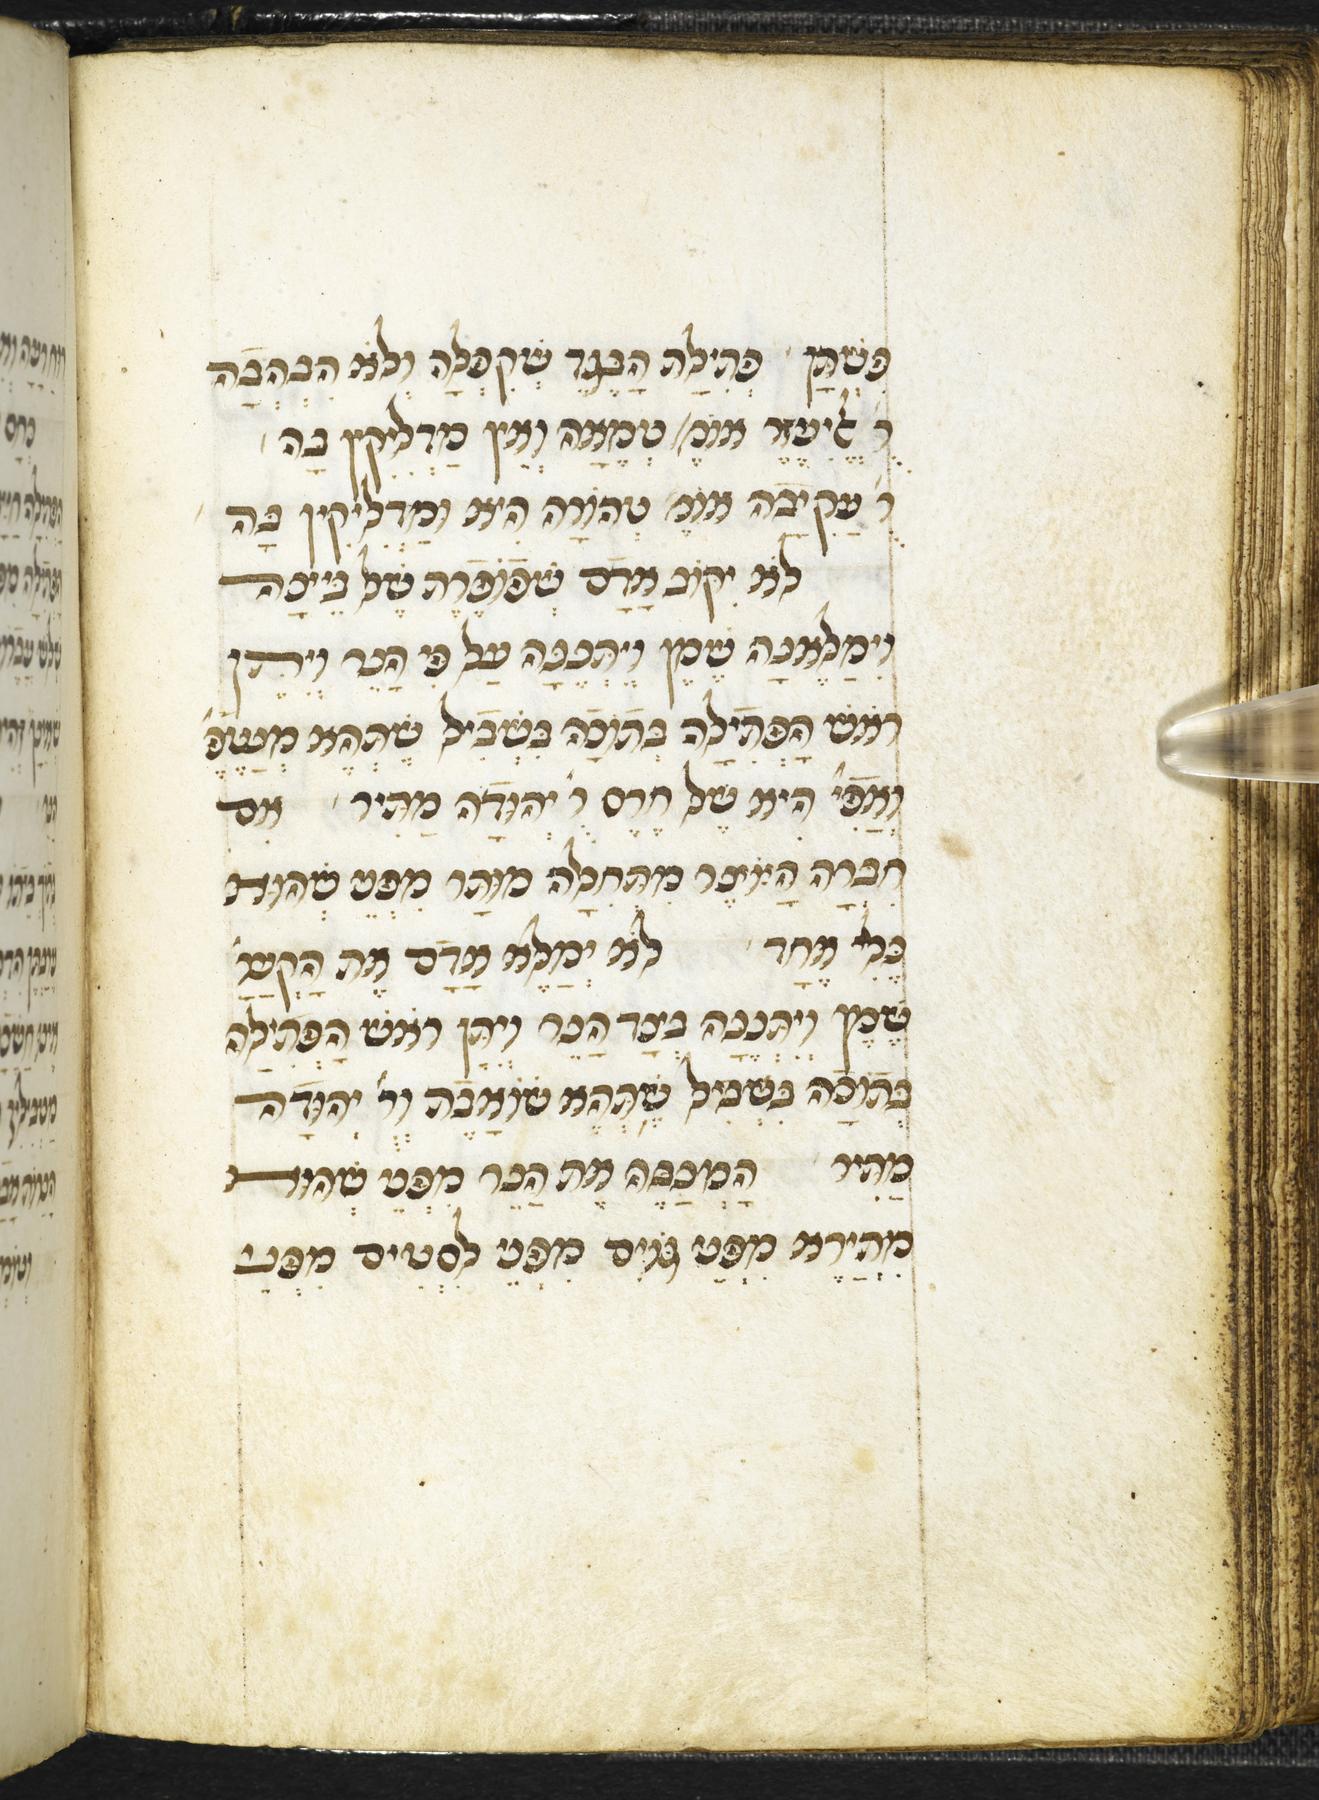 פשתן פתילת הבגד שקפלה ולא הבהבה
ר' אליעזר אומ' טמאה ואין מדליקין בה
ר' עקיבה אומ' טהורה היא ומדליקין בה
לא יקוב אדם שפופרת של ביצה
וימלאנה שמן ויתננה על פי הנר ויתן
ראש הפתילה בתוכה בשביל שתהא מנטפ'
ואפי' היא של חרס ר' יהודה מתיר אם
חברה היוצר מתחלה מותר מפני שהוא
כלי אחד לא ימלא אדם את הקער'
שמן ויתננה בצד הנר ויתן ראש הפתילה
בתוכה בשביל שתהא שואבת ור' יהודה
מתיר המכבה את הנר מפני שהוא
מתירא מפני גוים מפני לסטים מפני